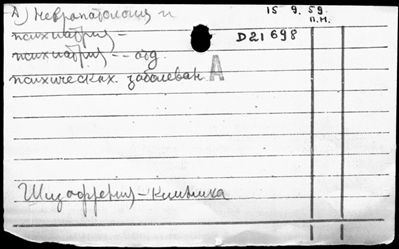 А) Невропатология и
15 9. 59.
п.м.
психиатрия –
D21698
психиатрия – – отд.
психических. заболеван. А
Шизофрения – клиника